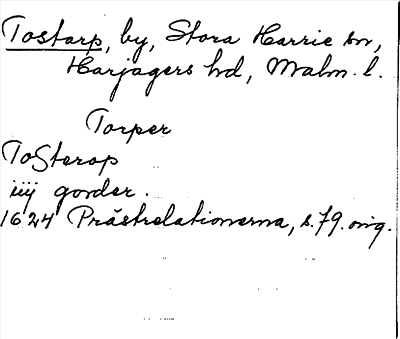 Tostarp, by, Stora Harrie sn,
Harjagers hd, Malm. l.
Torper
ToSterop
iiij gorder.
1624 Prästrelationerna, s. 79. orig.